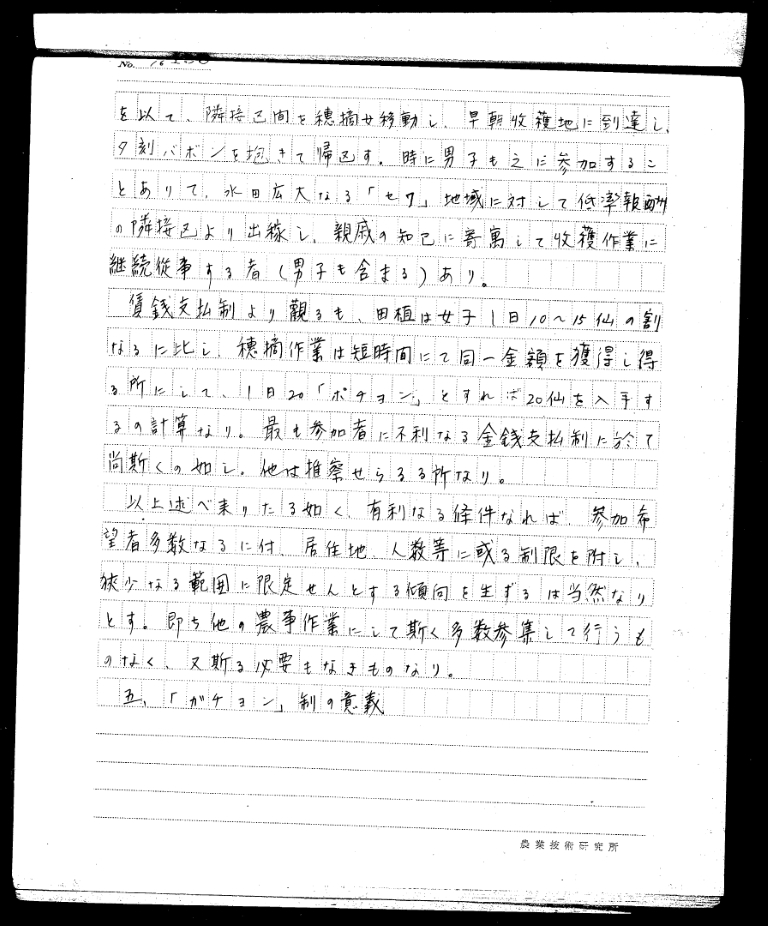 No. 76
を以て、隣接区間を穂摘女移動し、早朝收穫地に到達し、
夕刻バボンを抱きて帰区す。時に男子も之に参加するこ
とありて、水田広大なる「セワ」地域に対して低率報酬
の隣接区より出稼し、親戚の知己に寄寓して收穫作業に
継続從事する者(男子も含まる)あり。
賃銭支払制より観るも、田植は女子1日10〜15仙の割
なるに比し、穂摘作業は短時間にて同一金額を獲得し得
る所にして、1日20「ポチョン」とすれば20仙を入手す
るの計算なり。最も参加者に不利なる金銭支払制に於て
尚斯くの如し、他は推察せらるる所なり。
以上述べ来りたる如く、有利なる條件なれば、参加希
望者多数なるに付、居住地、人数等に或る制限を附し、
狭少なる範囲に限定せんとする傾向を生ずるは当然なり
とす。即ち他の農事作業にして斯く多数参集して行うも
のなく、又斯る必要もなきものなり。
五、「ガチョン」制の意義
農業技術研究所